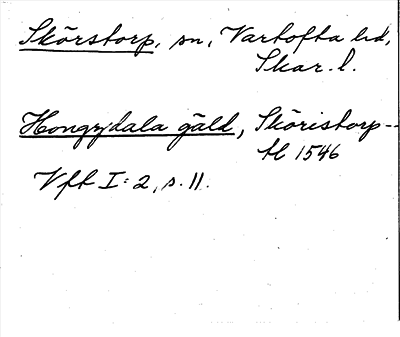 Skörstorp, sn, Vartofta hd,
Skar. l.
Hongzdala gäld, Sköristorp--
tl 1546
Vft I:2, s. 11.